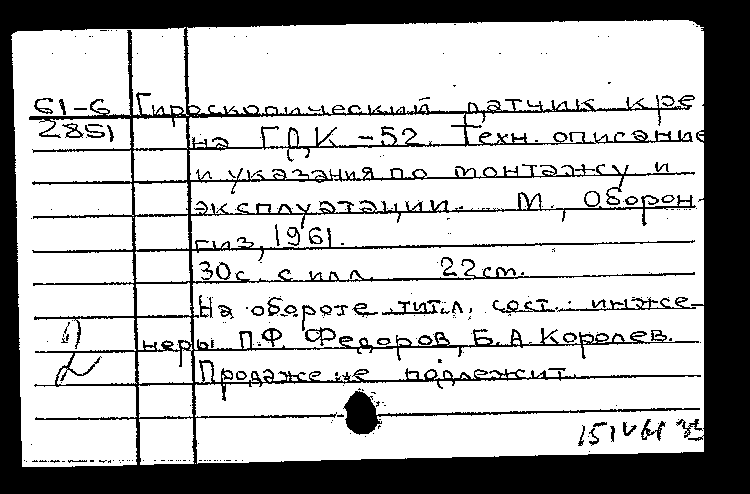 61-6 Гироскопический датчик кре-
2851 на ГД,К-52. Техн. описание
и указания по монтажу и
эксплуатации. М., Оборон-
гиз, 1961.
30с. с илл. 22см.
На обороте тит.л, сост.: инже-
неры П.Ф. Федоров, Б.А. Королев.
Продаже не подлежит.
2